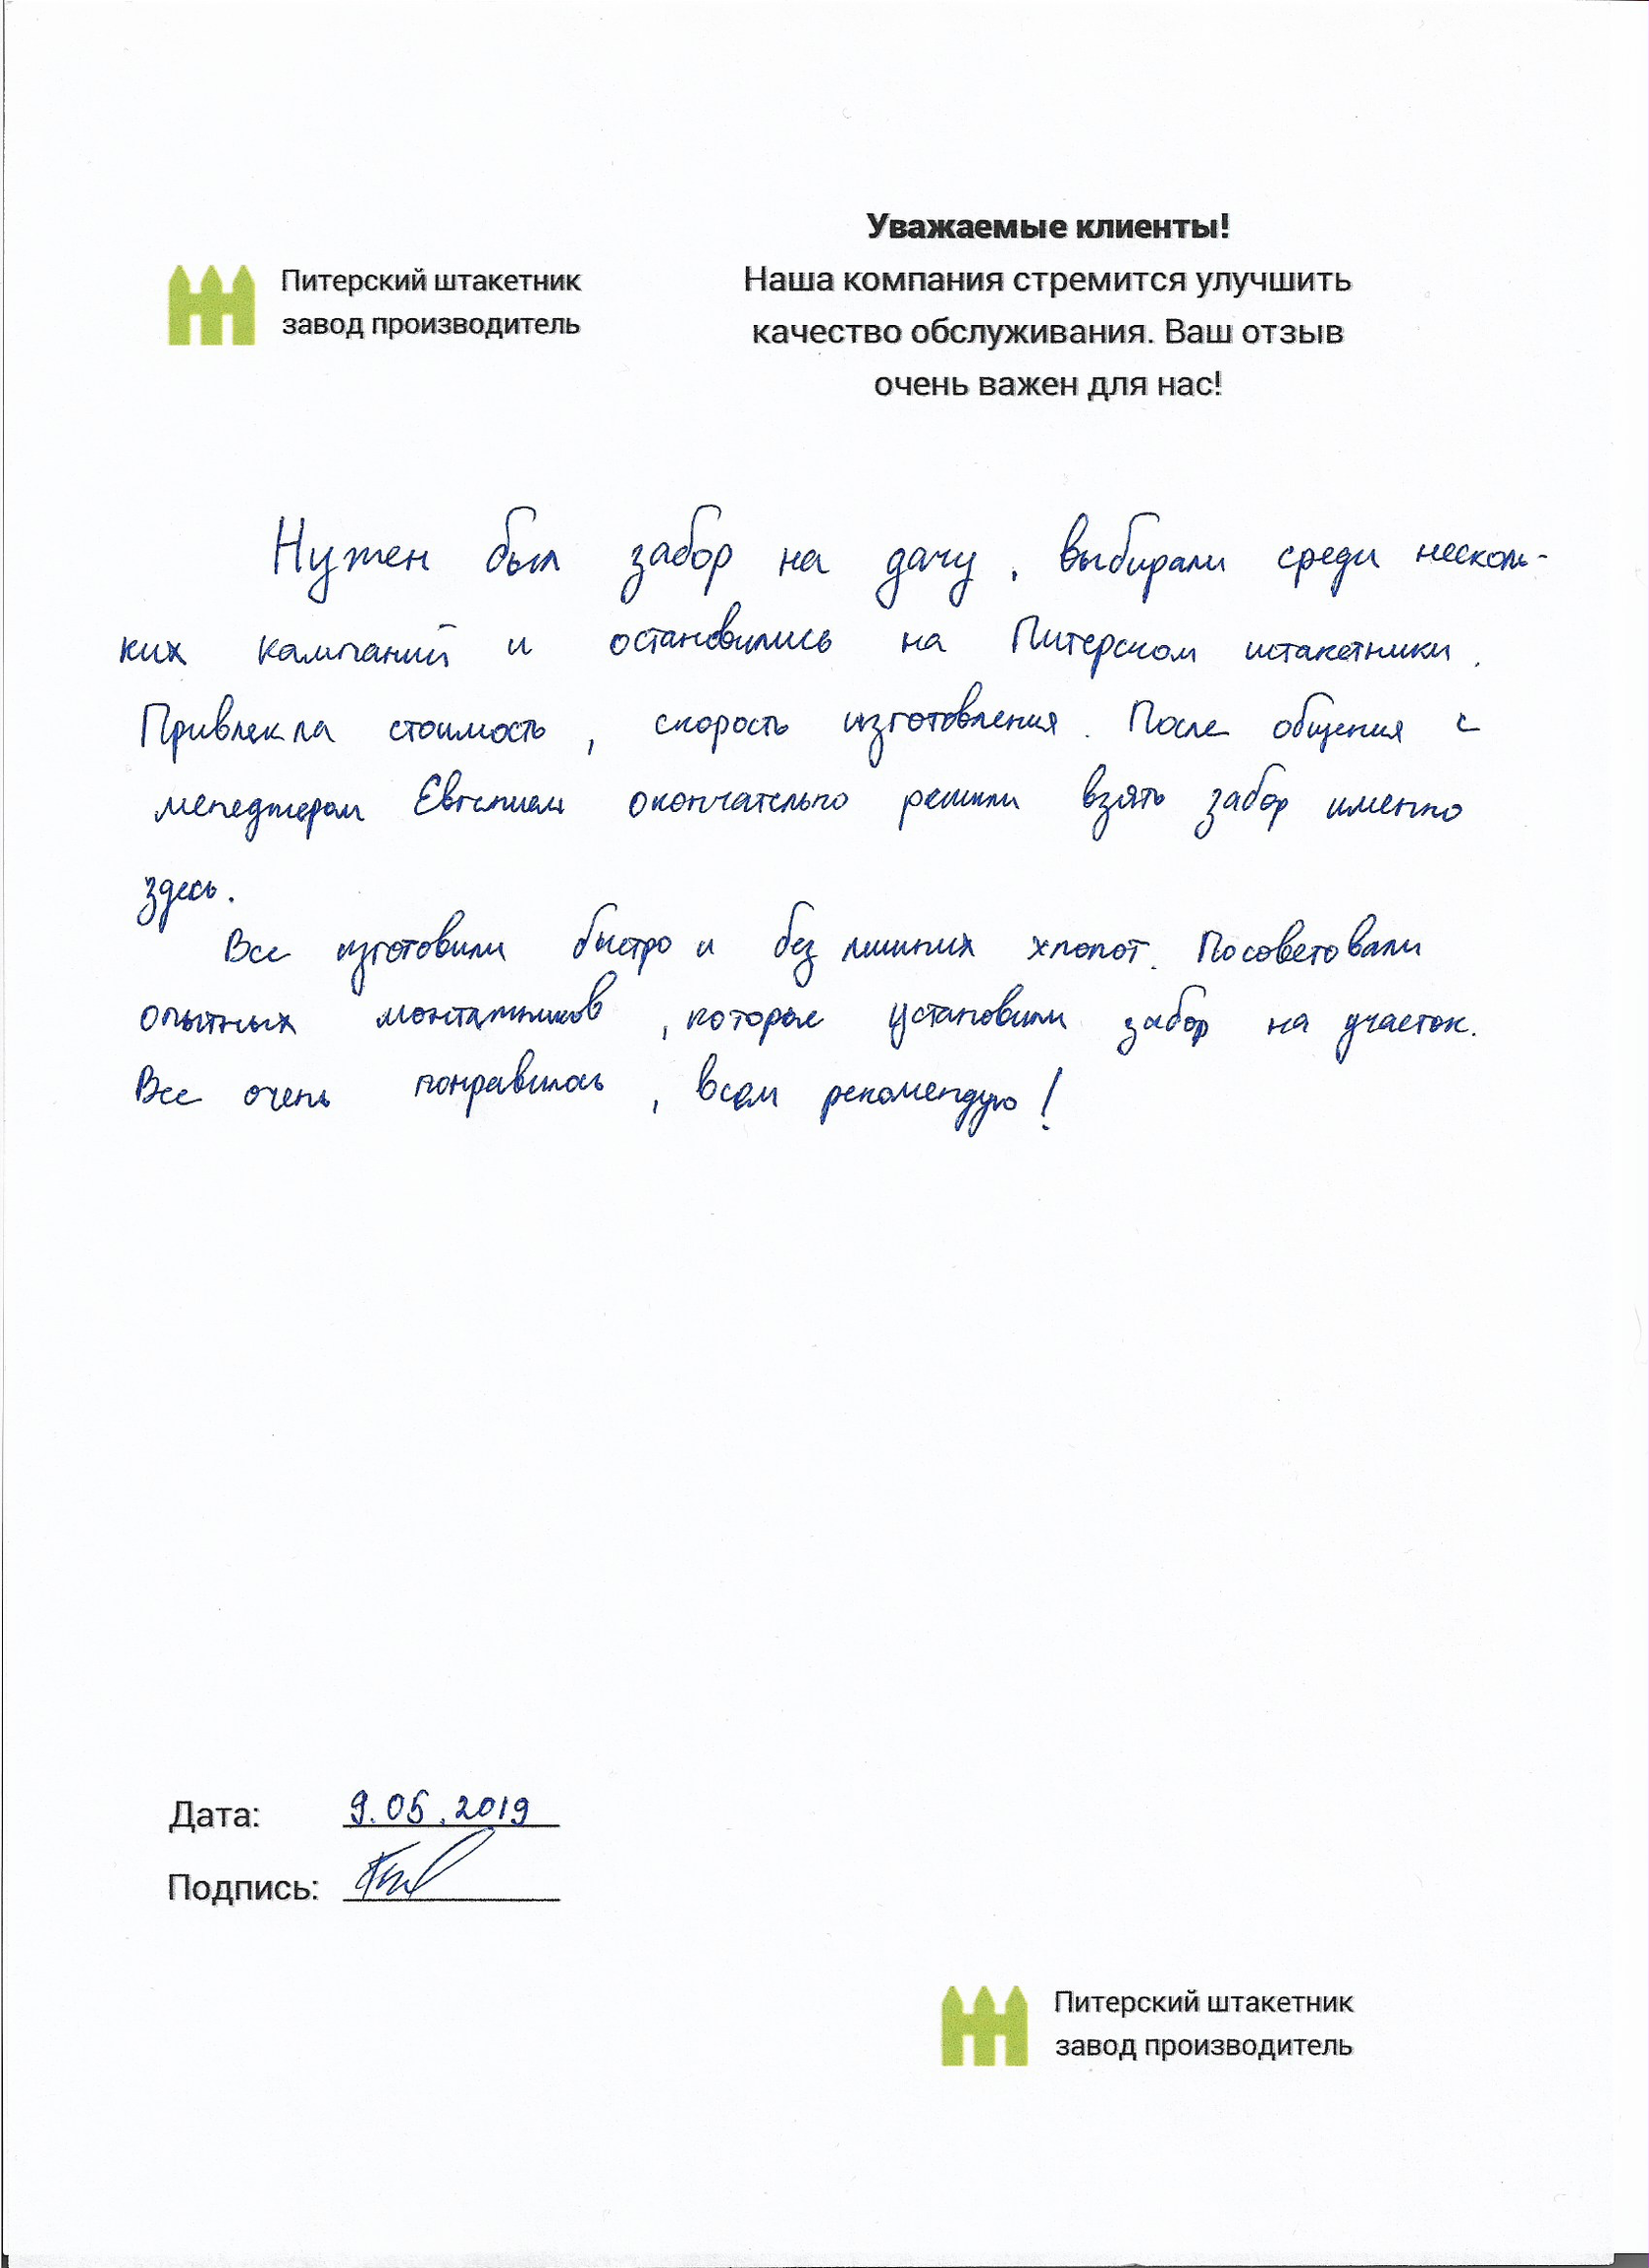 Уважаемые клиенты!
Питерский штакетник
завод производитель
Наша компания стремится улучшить
качество обслуживания. Ваш отзыв
очень важен для нас!
Нужен был забор на дачу, выбирали среди несколь-
ких кампаний и остановились на Питерском штакетники.
Привлекла стоимость, скорость изготовления. После общения с
менеджером Евгением окончательно решили взять забор именно
здесь.
Все изготовили быстро и без лишних хлопот. Посоветовали
опытных монтажников, которые установили забор на участок.
Все очень понравилось, всем рекомендую!
Дата: 9.05.2019
Подпись:
Питерский штакетник
завод производитель